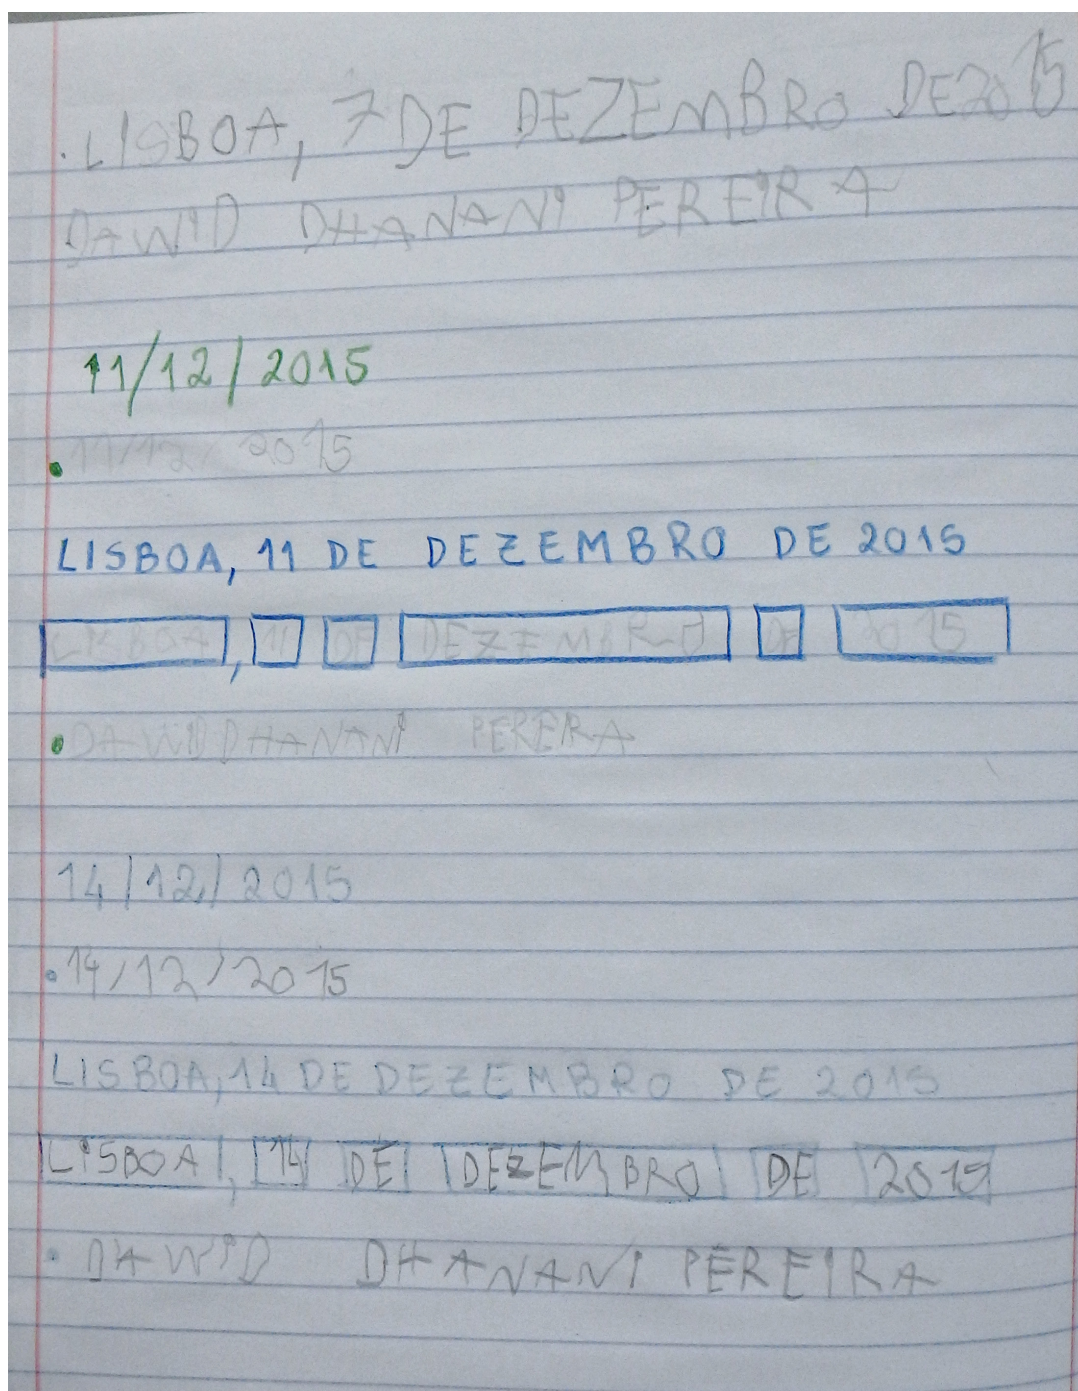 LISBOA, 7 DE DEZEMBRO DE 2015
DAWID DHANANI PEREIRA
11/12/2015
11/12/2015
LISBOA, 11 DE DEZEMBRO DE 2015
LISBOA, 11 DE DEZEMBRO DE 2015
DAWID DHANANI PEREIRA
14/12/2015
14/12/2015
LISBOA, 14 DE DEZEMBRO DE 2015
LISBOA, 14 DE DEZEMBRO DE 2015
DAWID DHANANI PEREIRA